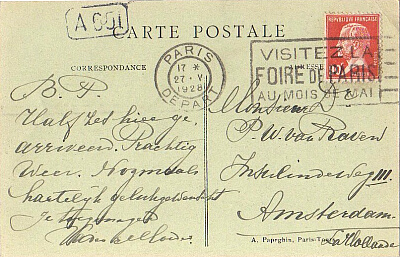 A 661
CARTE POSTALE
CORRESPONDANCE
ADRESSE
REPUBLIQUE FRANÇAISE
PARIS
17 *
27 · V
1928
DÉPART
VISITEZ LA
FOIRE DE PARIS
AU MOIS DE MAI
B. P.
Half zes hier ge
arriveerd. Prachtig
weer. Nogmaals
hartelijk gelukgewenscht
Je
Monsieur Dr
P. W. van
Insulindeweg III.
Amsterdam
La Hollande
A. Papeghin, Paris-Tours